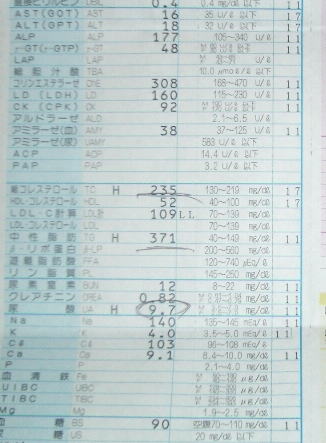 直接ビリルビン DBIL 0.4 0.4 mg/dℓ 以下 11
AST(GOT) AST 16 35 U/ℓ 以下 17
ALT(GPT) ALT 18 32 U/ℓ 以下 17
ALP ALP 177 105~340 U/ℓ
γ-GT(γ-GTP) γ-GT 48 U/ℓ 以下 11
LAP LAP U/ℓ
総胆汁酸 TBA 10.0 μmol/ℓ 以下
コリンエステラーゼ CHE 308 168~470 U/ℓ 11
LD (LDH) LD 160 115~230 U/ℓ 11
CK (CPK) CK 92 U/ℓ 11
アルドラーゼ ALD 2.1~6.5 U/ℓ
アミラーゼ(血) AMY 38 37~125 U/ℓ 11
アミラーゼ(尿) UAMY 583 U/ℓ 以下
ACP ACP 14.4 U/ℓ 以下
PAP PAP 3.2 U/ℓ 以下
総コレステロール TC H 235 130~219 mg/dℓ 17
HDL-コレステロール HDL 52 40~100 mg/dℓ 17
LDL-C計算 LDL計 109LL 70~139 mg/dℓ
LDLコレステロール LDL 70~139 mg/dℓ
中性脂肪 TG H 371 40~149 mg/dℓ 11
β-リポ蛋白 BLP 200~560 mg/dℓ
遊離脂肪酸 FFA 120~740 μEq/ℓ
リン脂質 PL 145~250 mg/dℓ
尿素窒素 BUN 12 8~22 mg/dℓ 11
クレアチニン CREA 0.82 mg/dℓ 11
尿酸 UA H 9.7 mg/dℓ 11
Na Na 140 135~145 mEq/ℓ 11
K K 4.0 3.5~5.0 mEq/ℓ 11
Cℓ Cℓ 103 96~108 mEq/ℓ
Ca Ca 9.1 8.4~10.0 mg/dℓ 11
P P 2.1~4.0 mg/dℓ
血清鉄 Fe μg/dℓ
UIBC UIBC μg/dℓ
TIBC TIBC μg/dℓ
Mg Mg 1.9~2.5 mg/dℓ
血糖 BS 90 空腹70~110 mg/dℓ 11
尿糖 US 20 mg/dℓ 以下